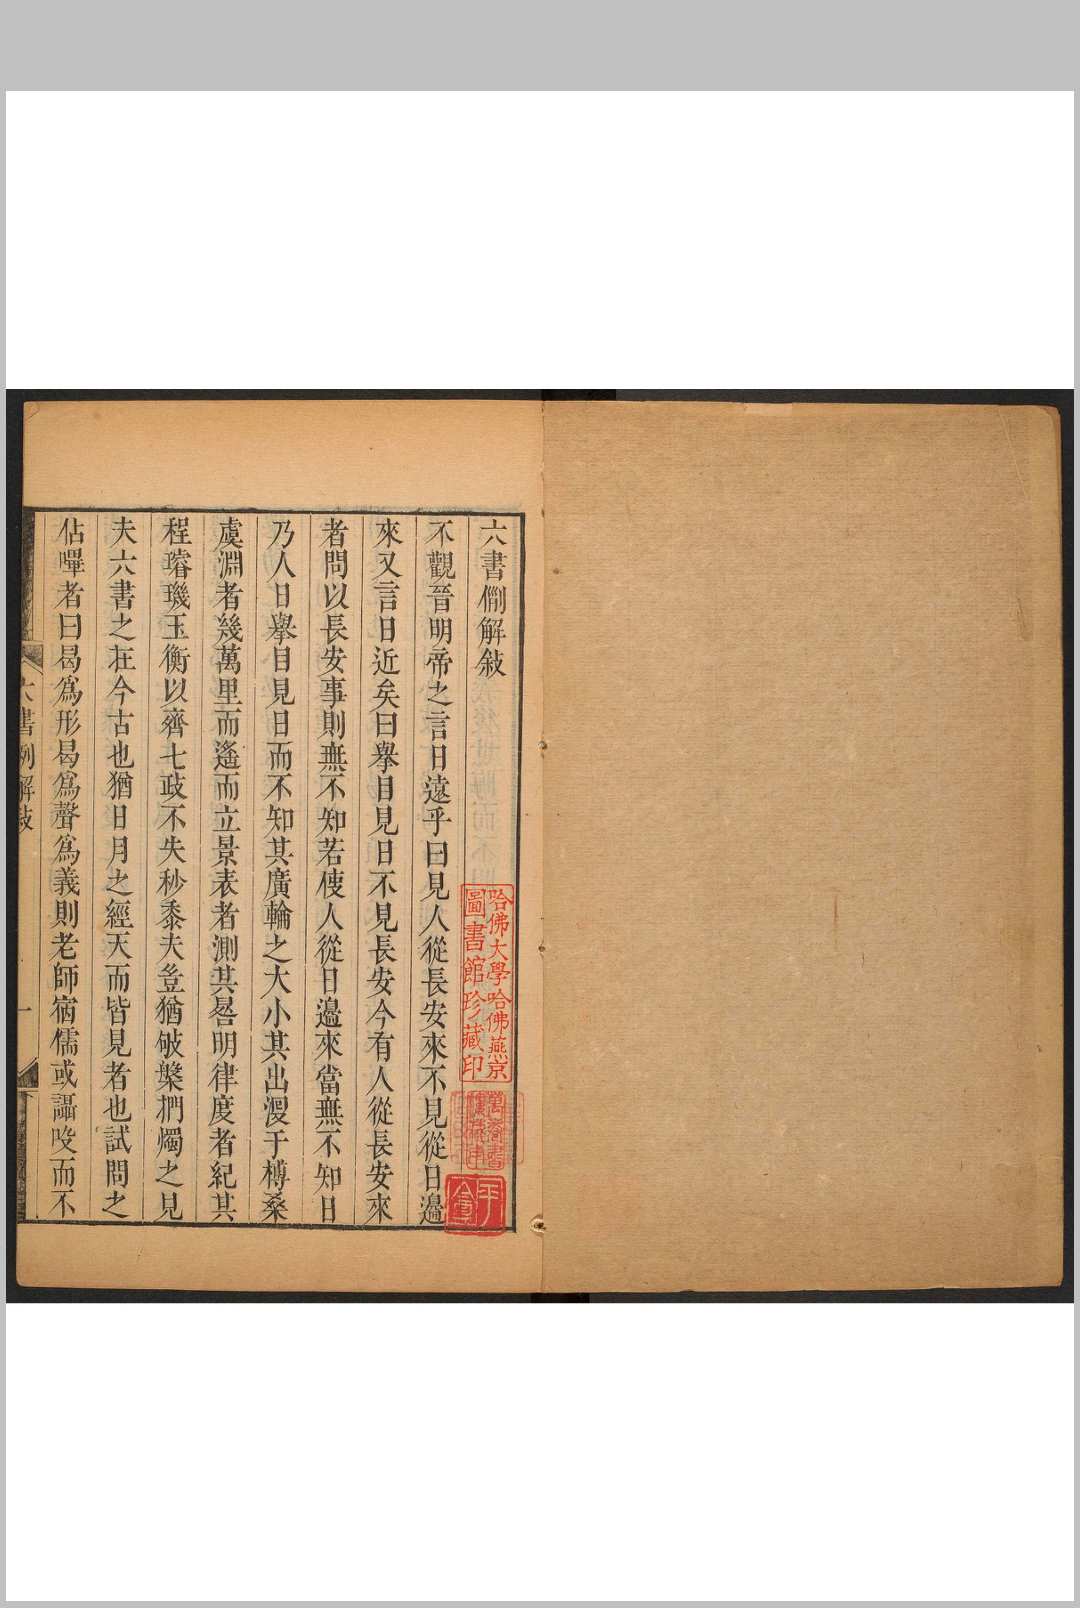 六書例解敍
不觀晉明帝之言日遠乎曰見人從長安來不見從日邊
來又言日近矣曰擧目見日不見長安今有人從長安來
者問以長安事則無不知若使人從日邊來當無不知日
乃人日擧目見日而不知其廣輪之大小其出沒于榑桑
虞淵者幾萬里而遙而立景表者測其晷明律度者紀其
程璿璣玉衡以齊七政不失秒黍夫豈猶敂槃捫燭之見
夫六書之在今古也猶日月之經天而皆見者也試問之
佔嗶者曰曷爲形曷爲聲爲義則老師宿儒或讘㕮而不
六書例解敍
一
哈佛大學哈佛燕京
圖書館珍藏印